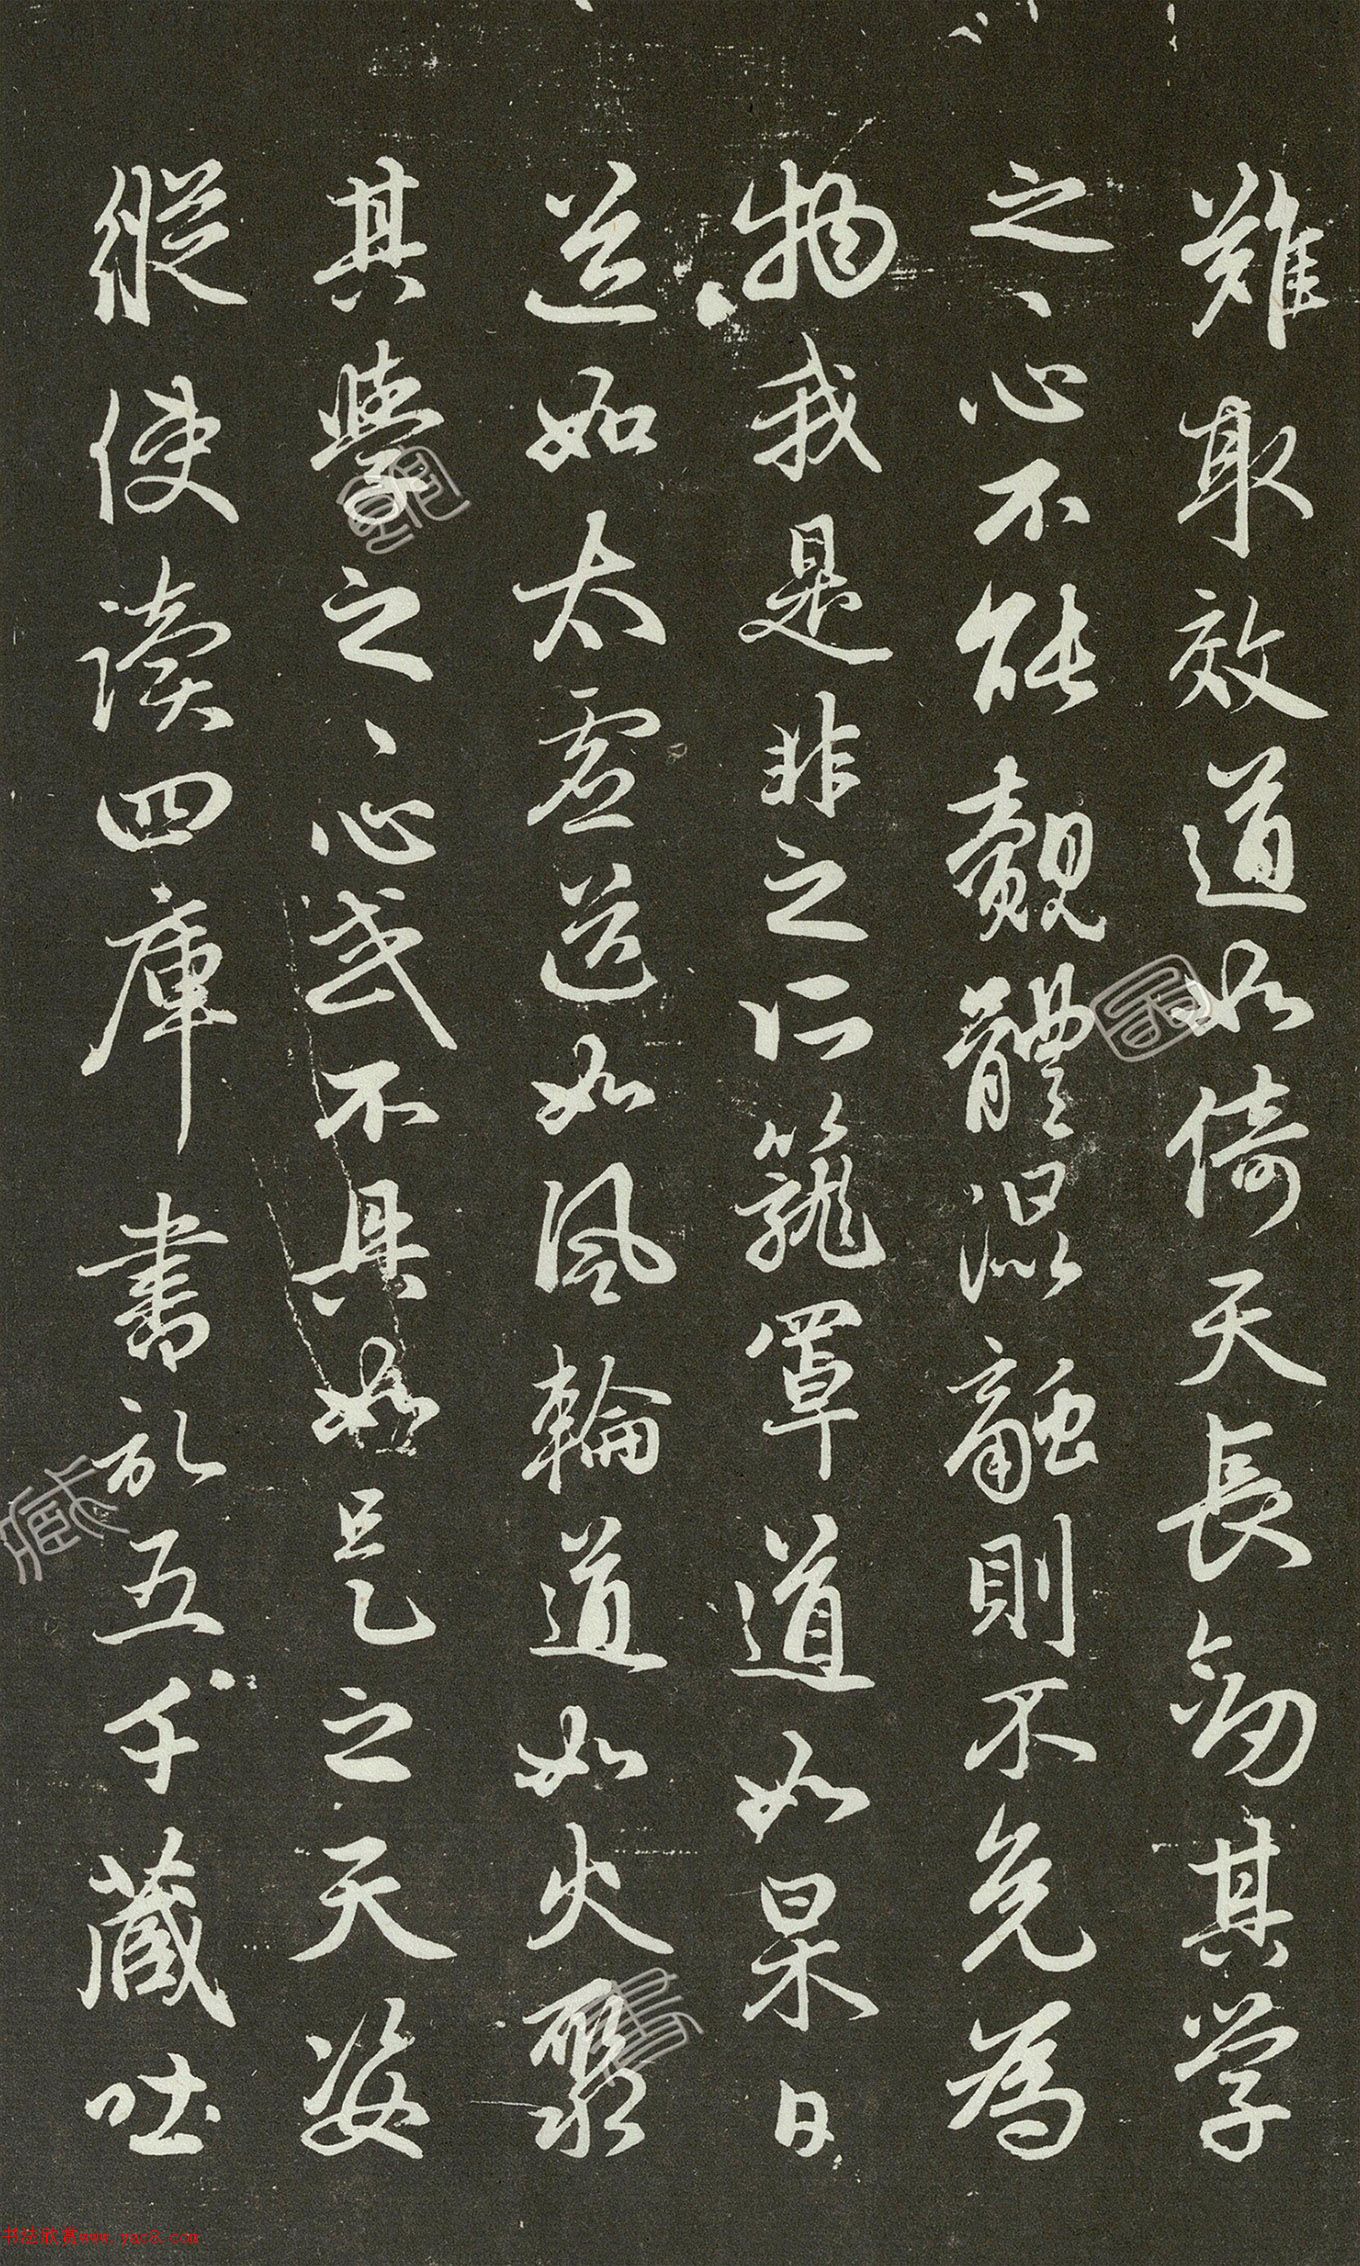 難取效道如倚天長劒其学
之〻心不能覿體混融則不免為
物我是非之所籠罩道如杲日
道如太虛道如風輪道如火聚
其學之〻心或不具如是之天姿
縱使讀四庫書於五千藏吐
书法欣赏www.yac8.com